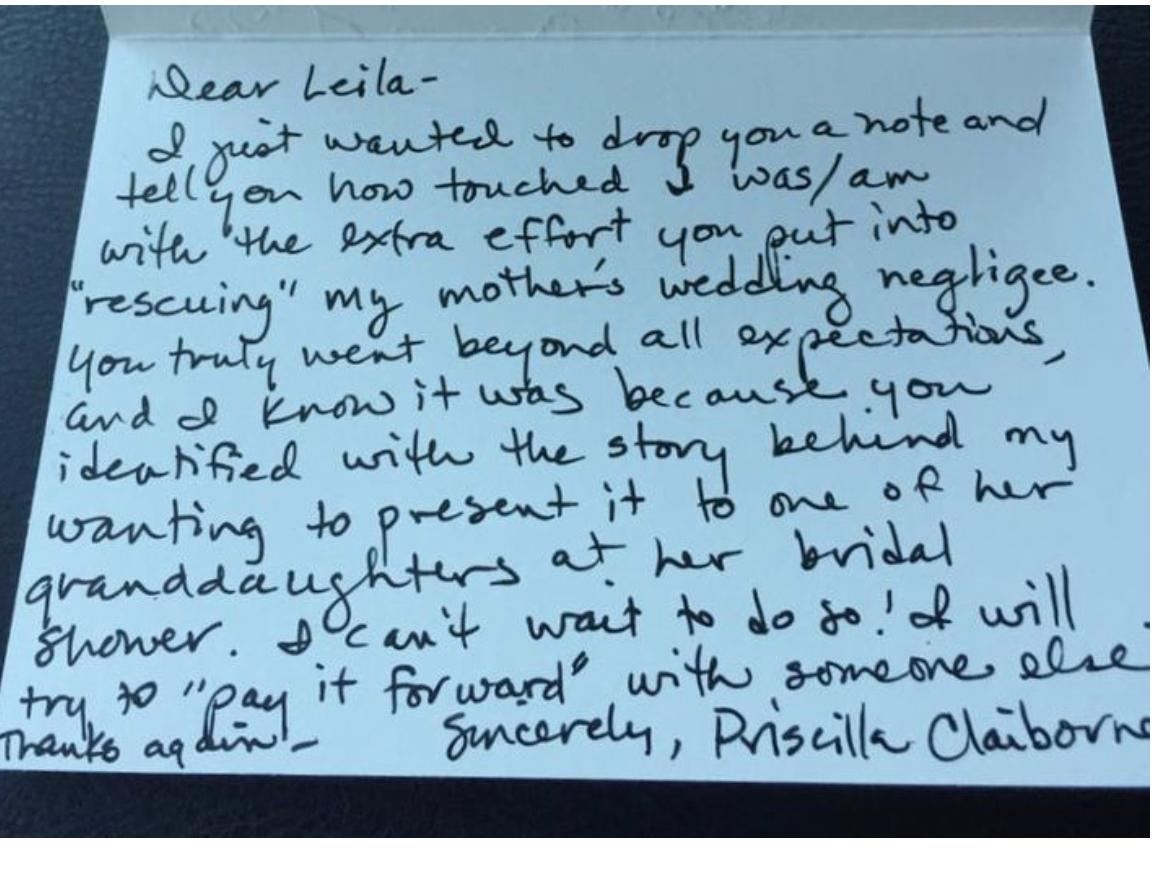 Dear Leila-
I just wanted to drop you a note and
tell you how touched I was/am
with the extra effort you put into
"rescuing" my mother's wedding negligee.
You truly went beyond all expectations,
and I know it was because you
identified with the story behind my
wanting to present it to one of her
granddaughters at her bridal
shower. I can't wait to do so! I will
try to "pay it forward" with someone else.
Thanks again!- Sincerely, Priscilla Claiborne